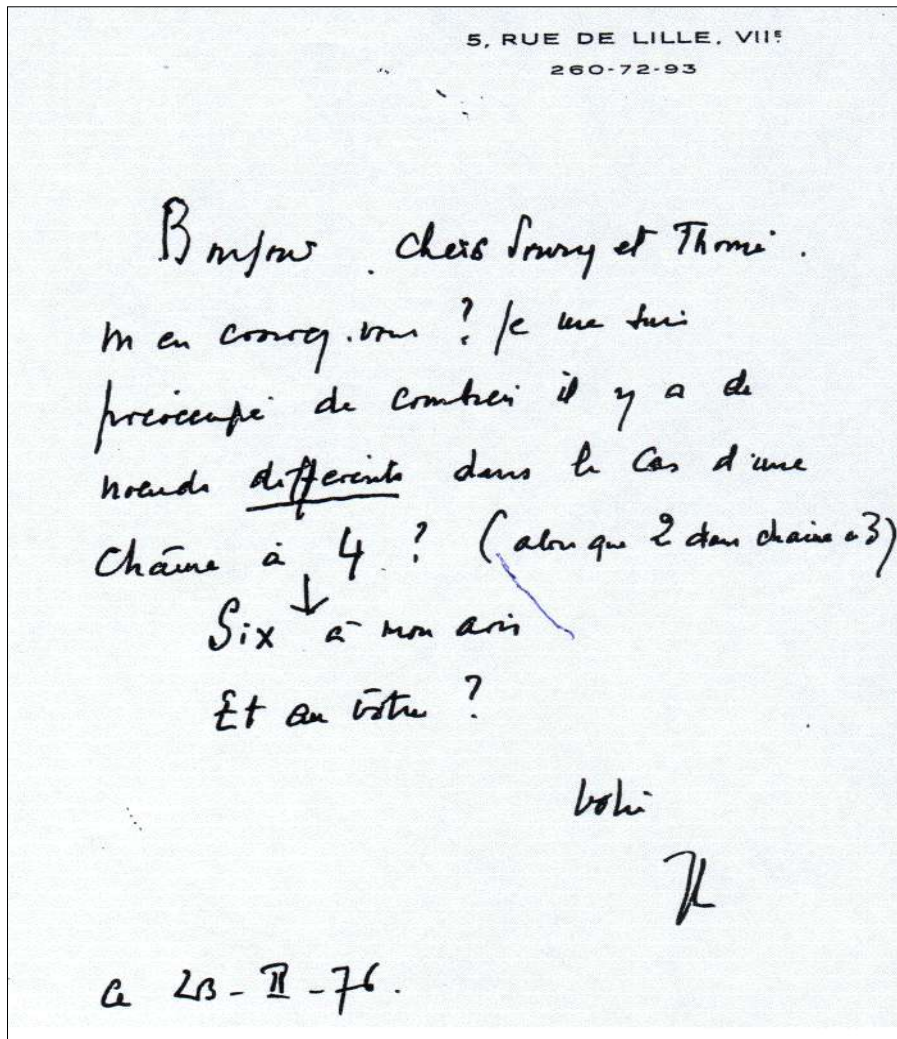 5, RUE DE LILLE, VIIᴱ
260-72-93
Bonjour. Chers Soury et Thomé.
M'en croirez-vous ? Je me suis
préoccupé de combien il y a de
noeuds différents dans le cas d'une
chaîne à 4 ? (alors que 2 dans chaîne à 3)
Six à mon avis
Et au vôtre ?
Votre
JL
Ce 23-II-76.